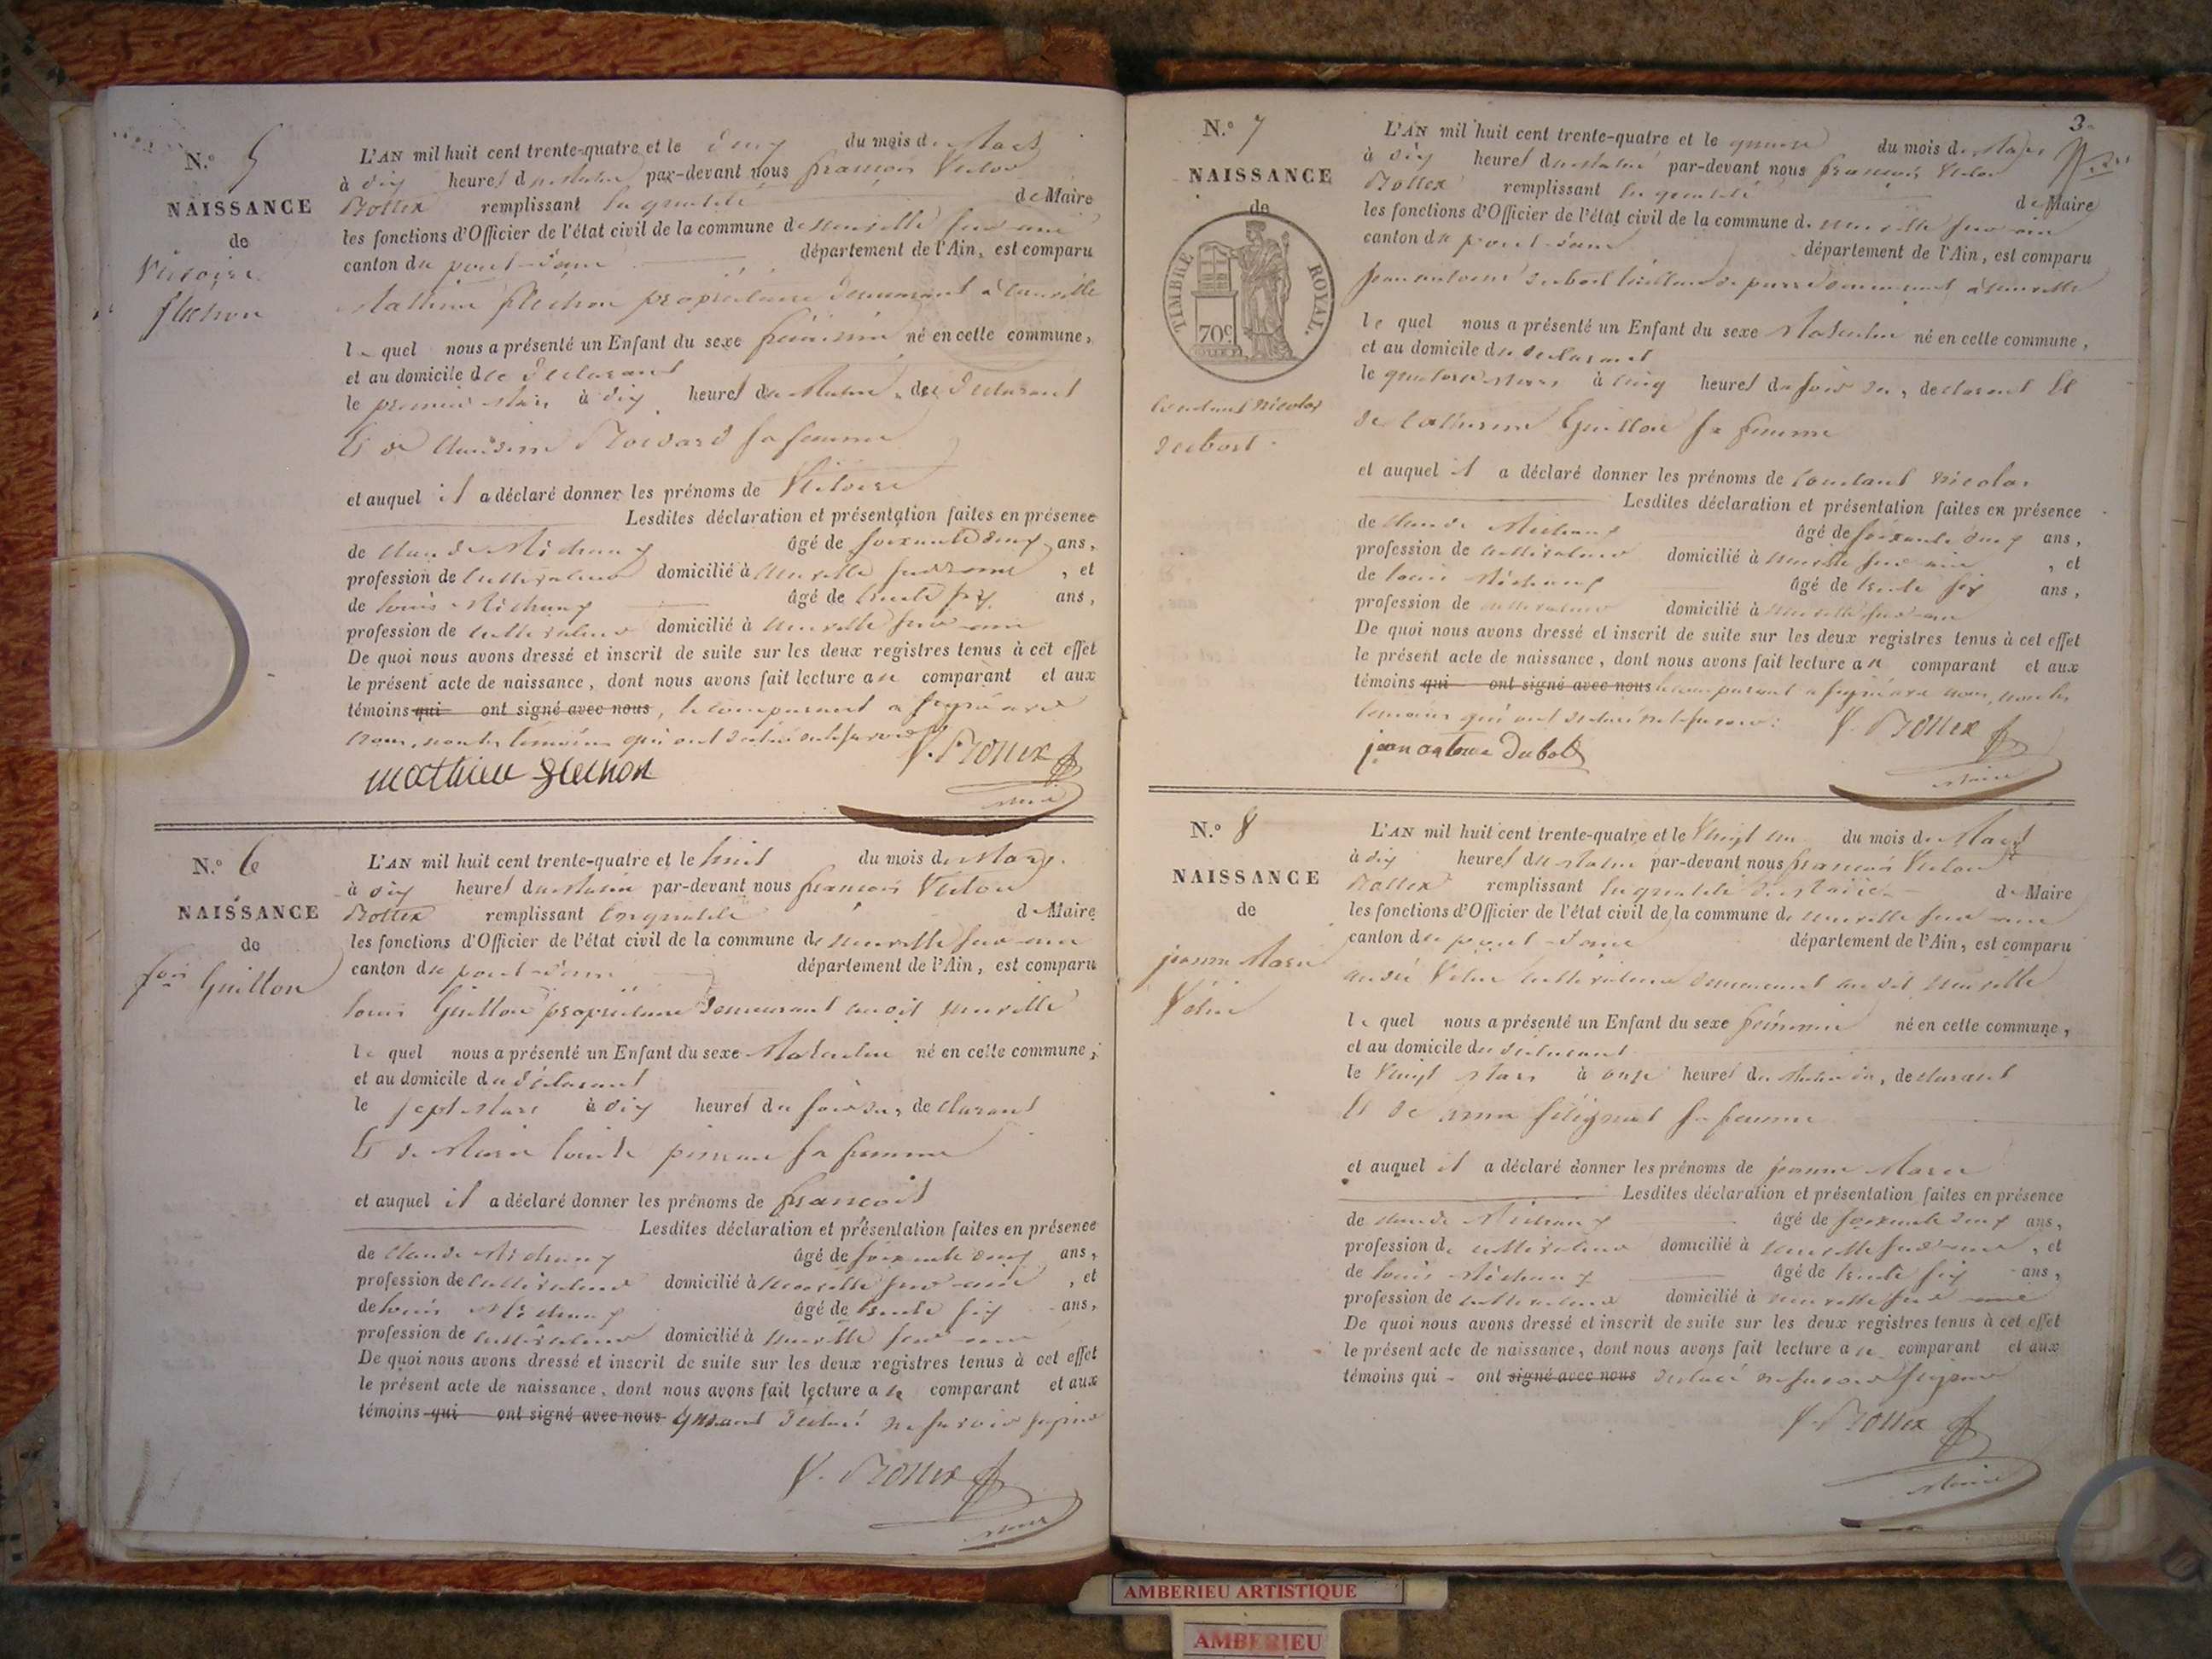 N.º 5
NAISSANCE
de
Victoire
flechon
L'AN mil huit cent trente-quatre et le deux du mois de Mars
à dix heures du Matin par-devant nous françois Victor
Bottex remplissant en qualité de Maire
les fonctions d'Officier de l'état civil de la commune de neuville sur ain
canton de pont-d'ain département de l'Ain, est comparu
Mathieu flechon propriétaire demeurant à neuville
le quel nous a présenté un Enfant du sexe féminin né en cette commune,
et au domicile du declarant
le premier Mars à dix heures du Matin, du declarant
Et de Claudine sa femme
et auquel il a déclaré donner les prénoms de Victoire
Lesdites déclaration et présentation faites en présence
de claude Michaux âgé de soixante deux ans,
profession de cultivateur domicilié à neuville sur ain, et
de louis Michaux âgé de trente six ans,
profession de cultivateur domicilié à neuville sur ain
De quoi nous avons dressé et inscrit de suite sur les deux registres tenus à cet effet
le présent acte de naissance, dont nous avons fait lecture au comparant et aux
témoins qui ont signé avec nous, le comparant a signé avec
nous, non les témoins qui ont déclaré ne le savoir
mathieu flechon V. Bottex
maire
N.º 6
NAISSANCE
de
fois Guillon
L'AN mil huit cent trente-quatre et le huit du mois de Mars
à dix heures du Matin par-devant nous françois Victor
Bottex remplissant en qualité de Maire
les fonctions d'Officier de l'état civil de la commune de neuville sur ain
canton de pont-d'ain département de l'Ain, est comparu
louis Guillon propriétaire demeurant au dit neuville
le quel nous a présenté un Enfant du sexe Masculin né en cette commune,
et au domicile du déclarant
le sept Mars à dix heures du soir du, declarant
Et de Marie sa femme
et auquel il a déclaré donner les prénoms de françois
Lesdites déclaration et présentation faites en présence
de claude Michaux âgé de soixante deux ans,
profession de cultivateur domicilié à neuville sur ain, et
de louis Michaux âgé de trente six ans,
profession de cultivateur domicilié à neuville sur ain
De quoi nous avons dressé et inscrit de suite sur les deux registres tenus à cet effet
le présent acte de naissance, dont nous avons fait lecture au comparant et aux
témoins qui ont signé avec nous qui ont déclaré ne savoir signer
V. Bottex
maire
3.
N.º 7
NAISSANCE
de
TIMBRE ROYAL.
70c
constant nicolas
dubost
L'AN mil huit cent trente-quatre et le quinze du mois de Mars
à dix heures du Matin par-devant nous françois Victor
Bottex remplissant en qualité de Maire
les fonctions d'Officier de l'état civil de la commune de neuville sur ain
canton de pont-d'ain département de l'Ain, est comparu
jean antoine dubost tailleur de pierre demeurant à neuville
le quel nous a présenté un Enfant du sexe Masculin né en cette commune,
et au domicile du declarant
le quatorze mars à cinq heures du soir du, declarant Et
de catherine Guillon sa femme
et auquel il a déclaré donner les prénoms de constant nicolas
Lesdites déclaration et présentation faites en présence
de claude Michaux âgé de soixante deux ans,
profession de cultivateur domicilié à neuville sur ain, et
de louis Michaux âgé de trente six ans,
profession de cultivateur domicilié à neuville sur ain
De quoi nous avons dressé et inscrit de suite sur les deux registres tenus à cet effet
le présent acte de naissance, dont nous avons fait lecture au comparant et aux
témoins qui ont signé avec nous le comparant a signé avec nous, non les
temoins qui ont declaré ne le savoir. V. Bottex
jean antoine Dubost
maire
N.º 8
NAISSANCE
de
jeanne Marie
Velin
L'AN mil huit cent trente-quatre et le Vingt un du mois de Mars
à dix heures du Matin par-devant nous françois Victor
Bottex remplissant en qualité de Maire de Maire
les fonctions d'Officier de l'état civil de la commune de neuville sur ain
canton de pont-d'ain département de l'Ain, est comparu
andré Velin cultivateur demeurant au dit neuville
le quel nous a présenté un Enfant du sexe féminin né en cette commune,
et au domicile du declarant
le Vingt Mars à onze heures du Matin du, declarant
Et de anne sa femme
et auquel il a déclaré donner les prénoms de jeanne Marie
Lesdites déclaration et présentation faites en présence
de claude Michaux âgé de soixante deux ans,
profession de cultivateur domicilié à neuville sur ain, et
de louis Michaux âgé de trente six ans,
profession de cultivateur domicilié à neuville sur ain
De quoi nous avons dressé et inscrit de suite sur les deux registres tenus à cet effet
le présent acte de naissance, dont nous avons fait lecture au comparant et aux
témoins qui ont signé avec nous declaré ne savoir signer
V. Bottex
maire
AMBERIEU ARTISTIQUE
AMBERIEU